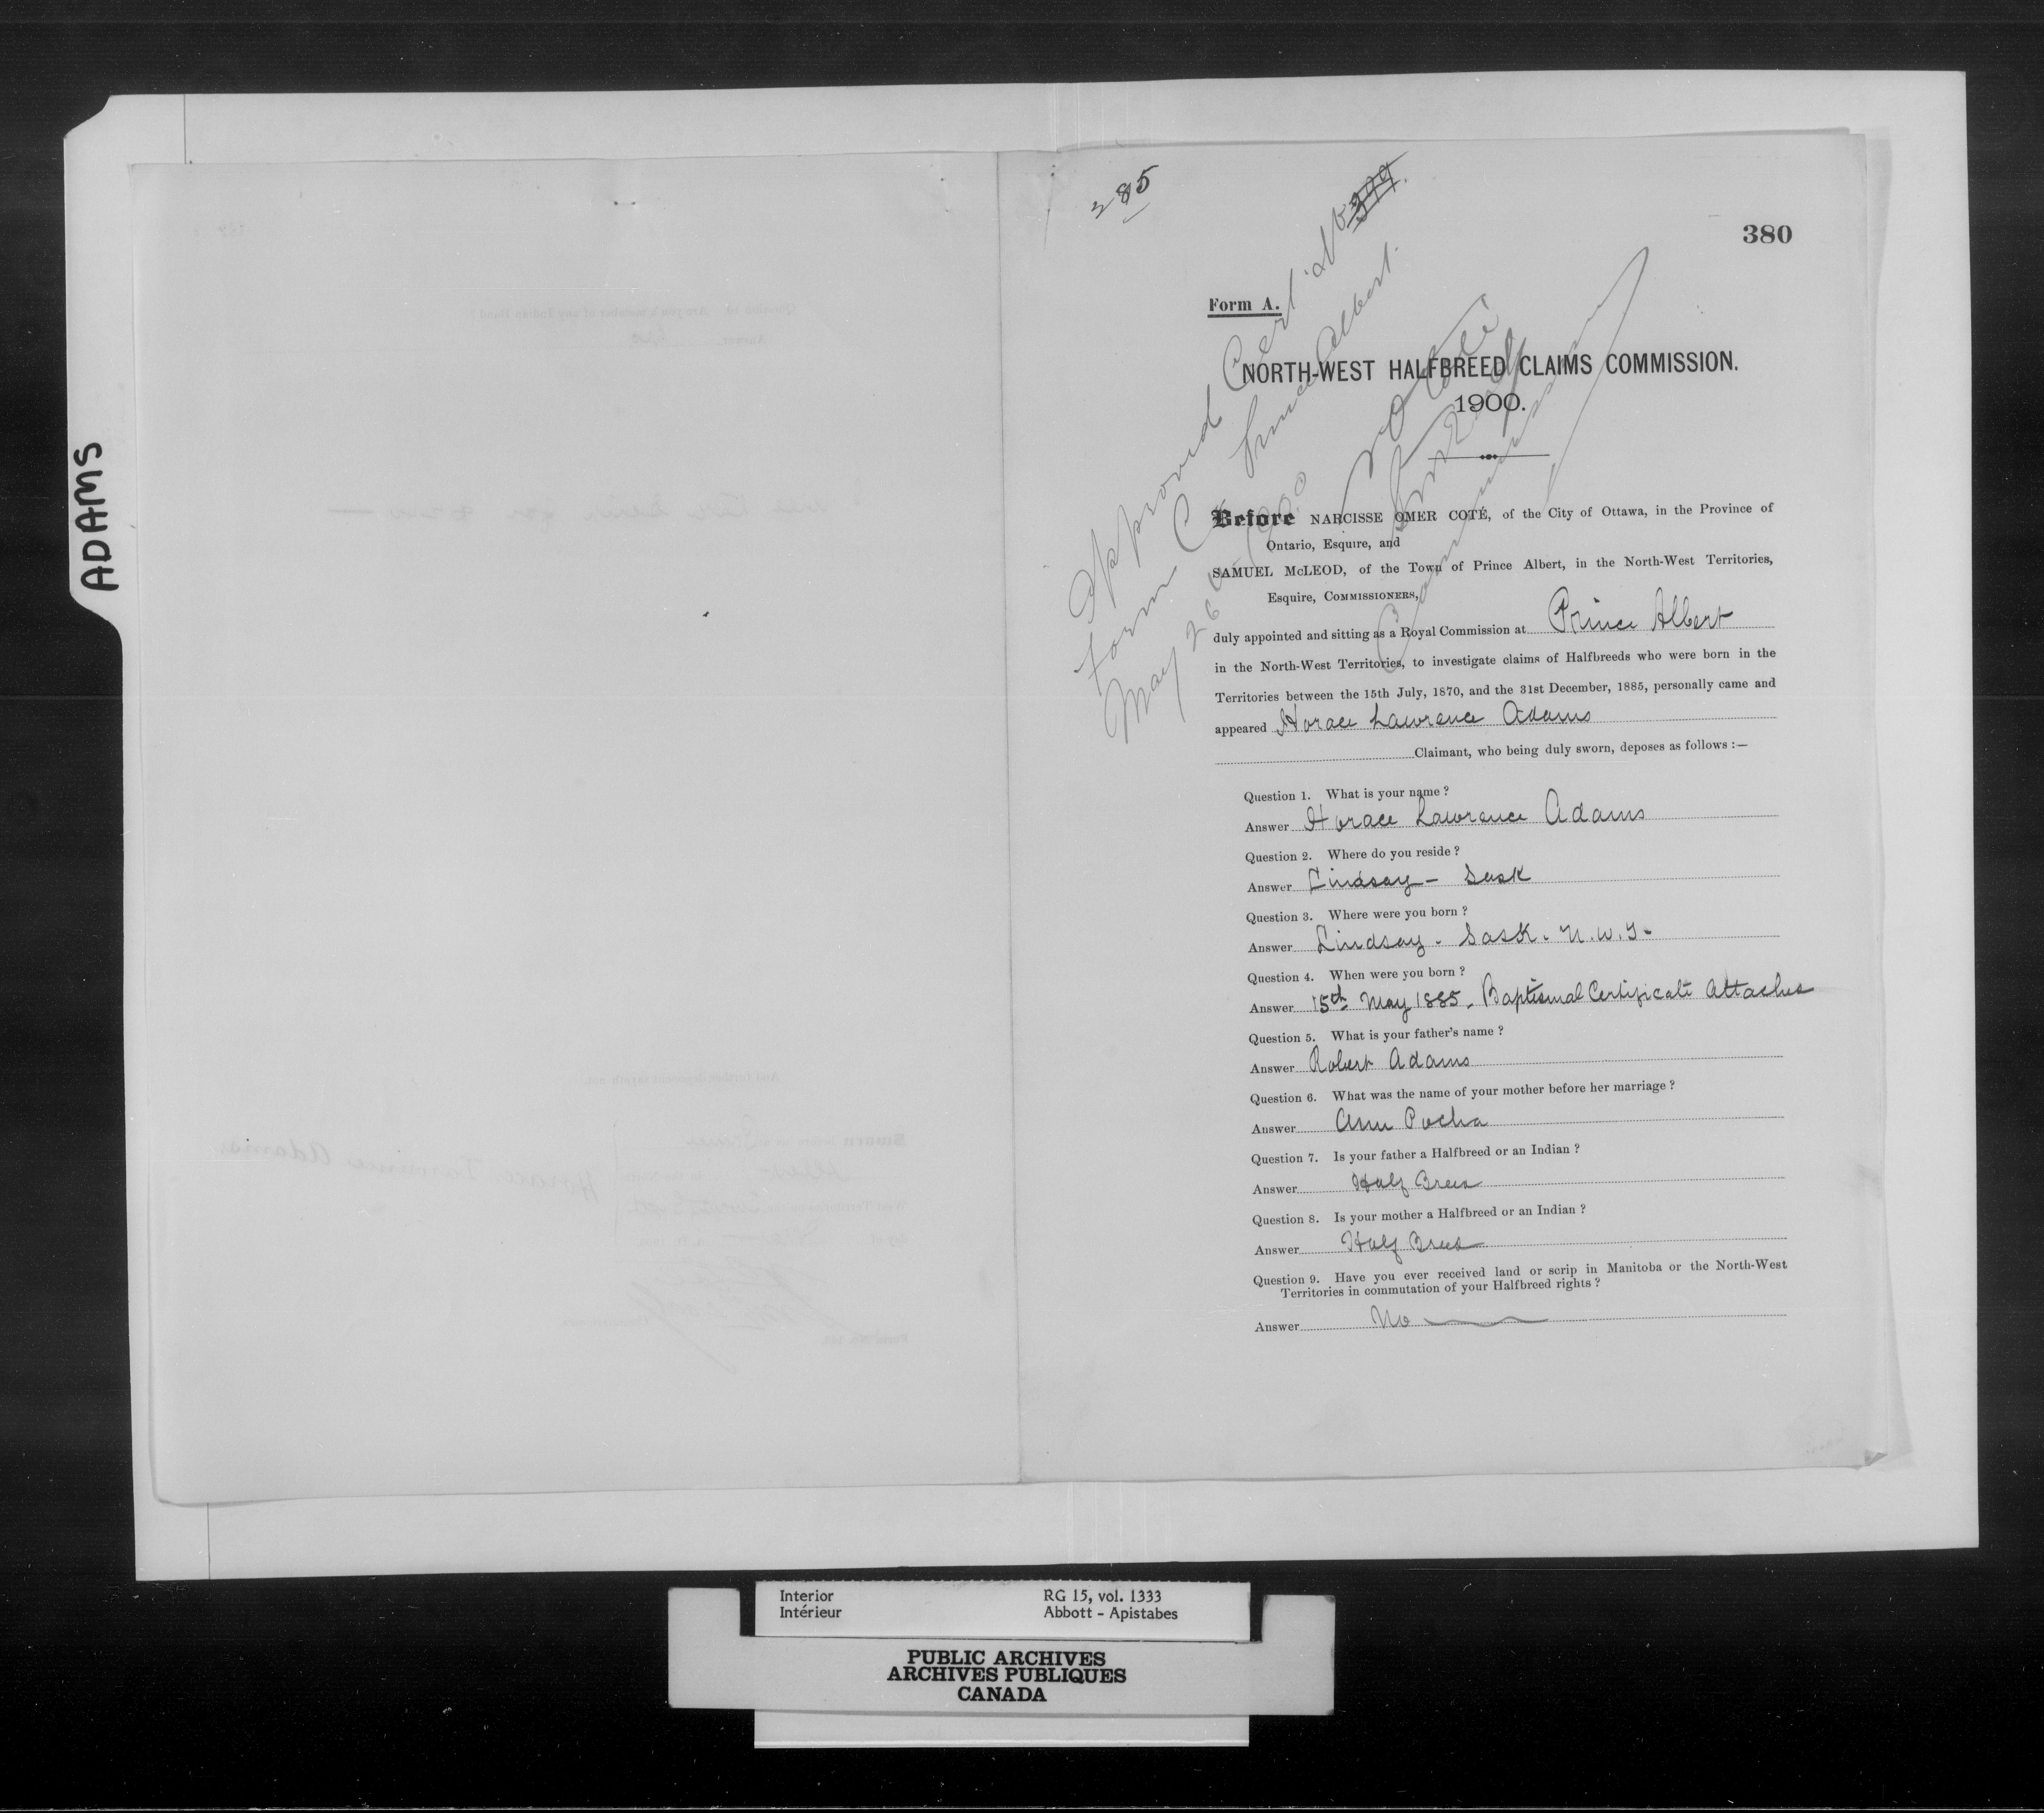 ADAMS
285
399.
380
Approved Cert
Form C Prince Albert.
May 26th 1900
N O Coté
Commissioner
Form A.
NORTH-WEST HALFBREED CLAIMS COMMISSION.
1900.
Before NARCISSE OMER COTÉ, of the City of Ottawa, in the Province of
Ontario, Esquire, and
SAMUEL McLEOD, of the Town of Prince Albert, in the North-West Territories,
Esquire, COMMISSIONERS,
duly appointed and sitting as a Royal Commission at Prince Albert
in the North-West Territories, to investigate claims of Halfbreeds who were born in the
Territories between the 15th July, 1870, and the 31st December, 1885, personally came and
appeared Horace Lawrence Adams
Claimant, who being duly sworn, deposes as follows :—
Question 1. What is your name ?
Answer Horace Lawrence Adams
Question 2. Where do you reside ?
Answer Lindsay - Sask
Question 3. Where were you born ?
Answer Lindsay - Sask. N.W.T.
Question 4. When were you born ?
Answer 15th May 1885. Baptismal Certificate Attached
Question 5. What is your father's name ?
Answer Robert Adams
Question 6. What was the name of your mother before her marriage ?
Answer Ann Pocha
Question 7. Is your father a Halfbreed or an Indian ?
Answer Half Breed
Question 8. Is your mother a Halfbreed or an Indian ?
Answer Half Breed
Question 9. Have you ever received land or scrip in Manitoba or the North-West
Territories in commutation of your Halfbreed rights ?
Answer No
Interior RG 15, vol. 1333
Intérieur Abbott - Apistabes
PUBLIC ARCHIVES
ARCHIVES PUBLIQUES
CANADA